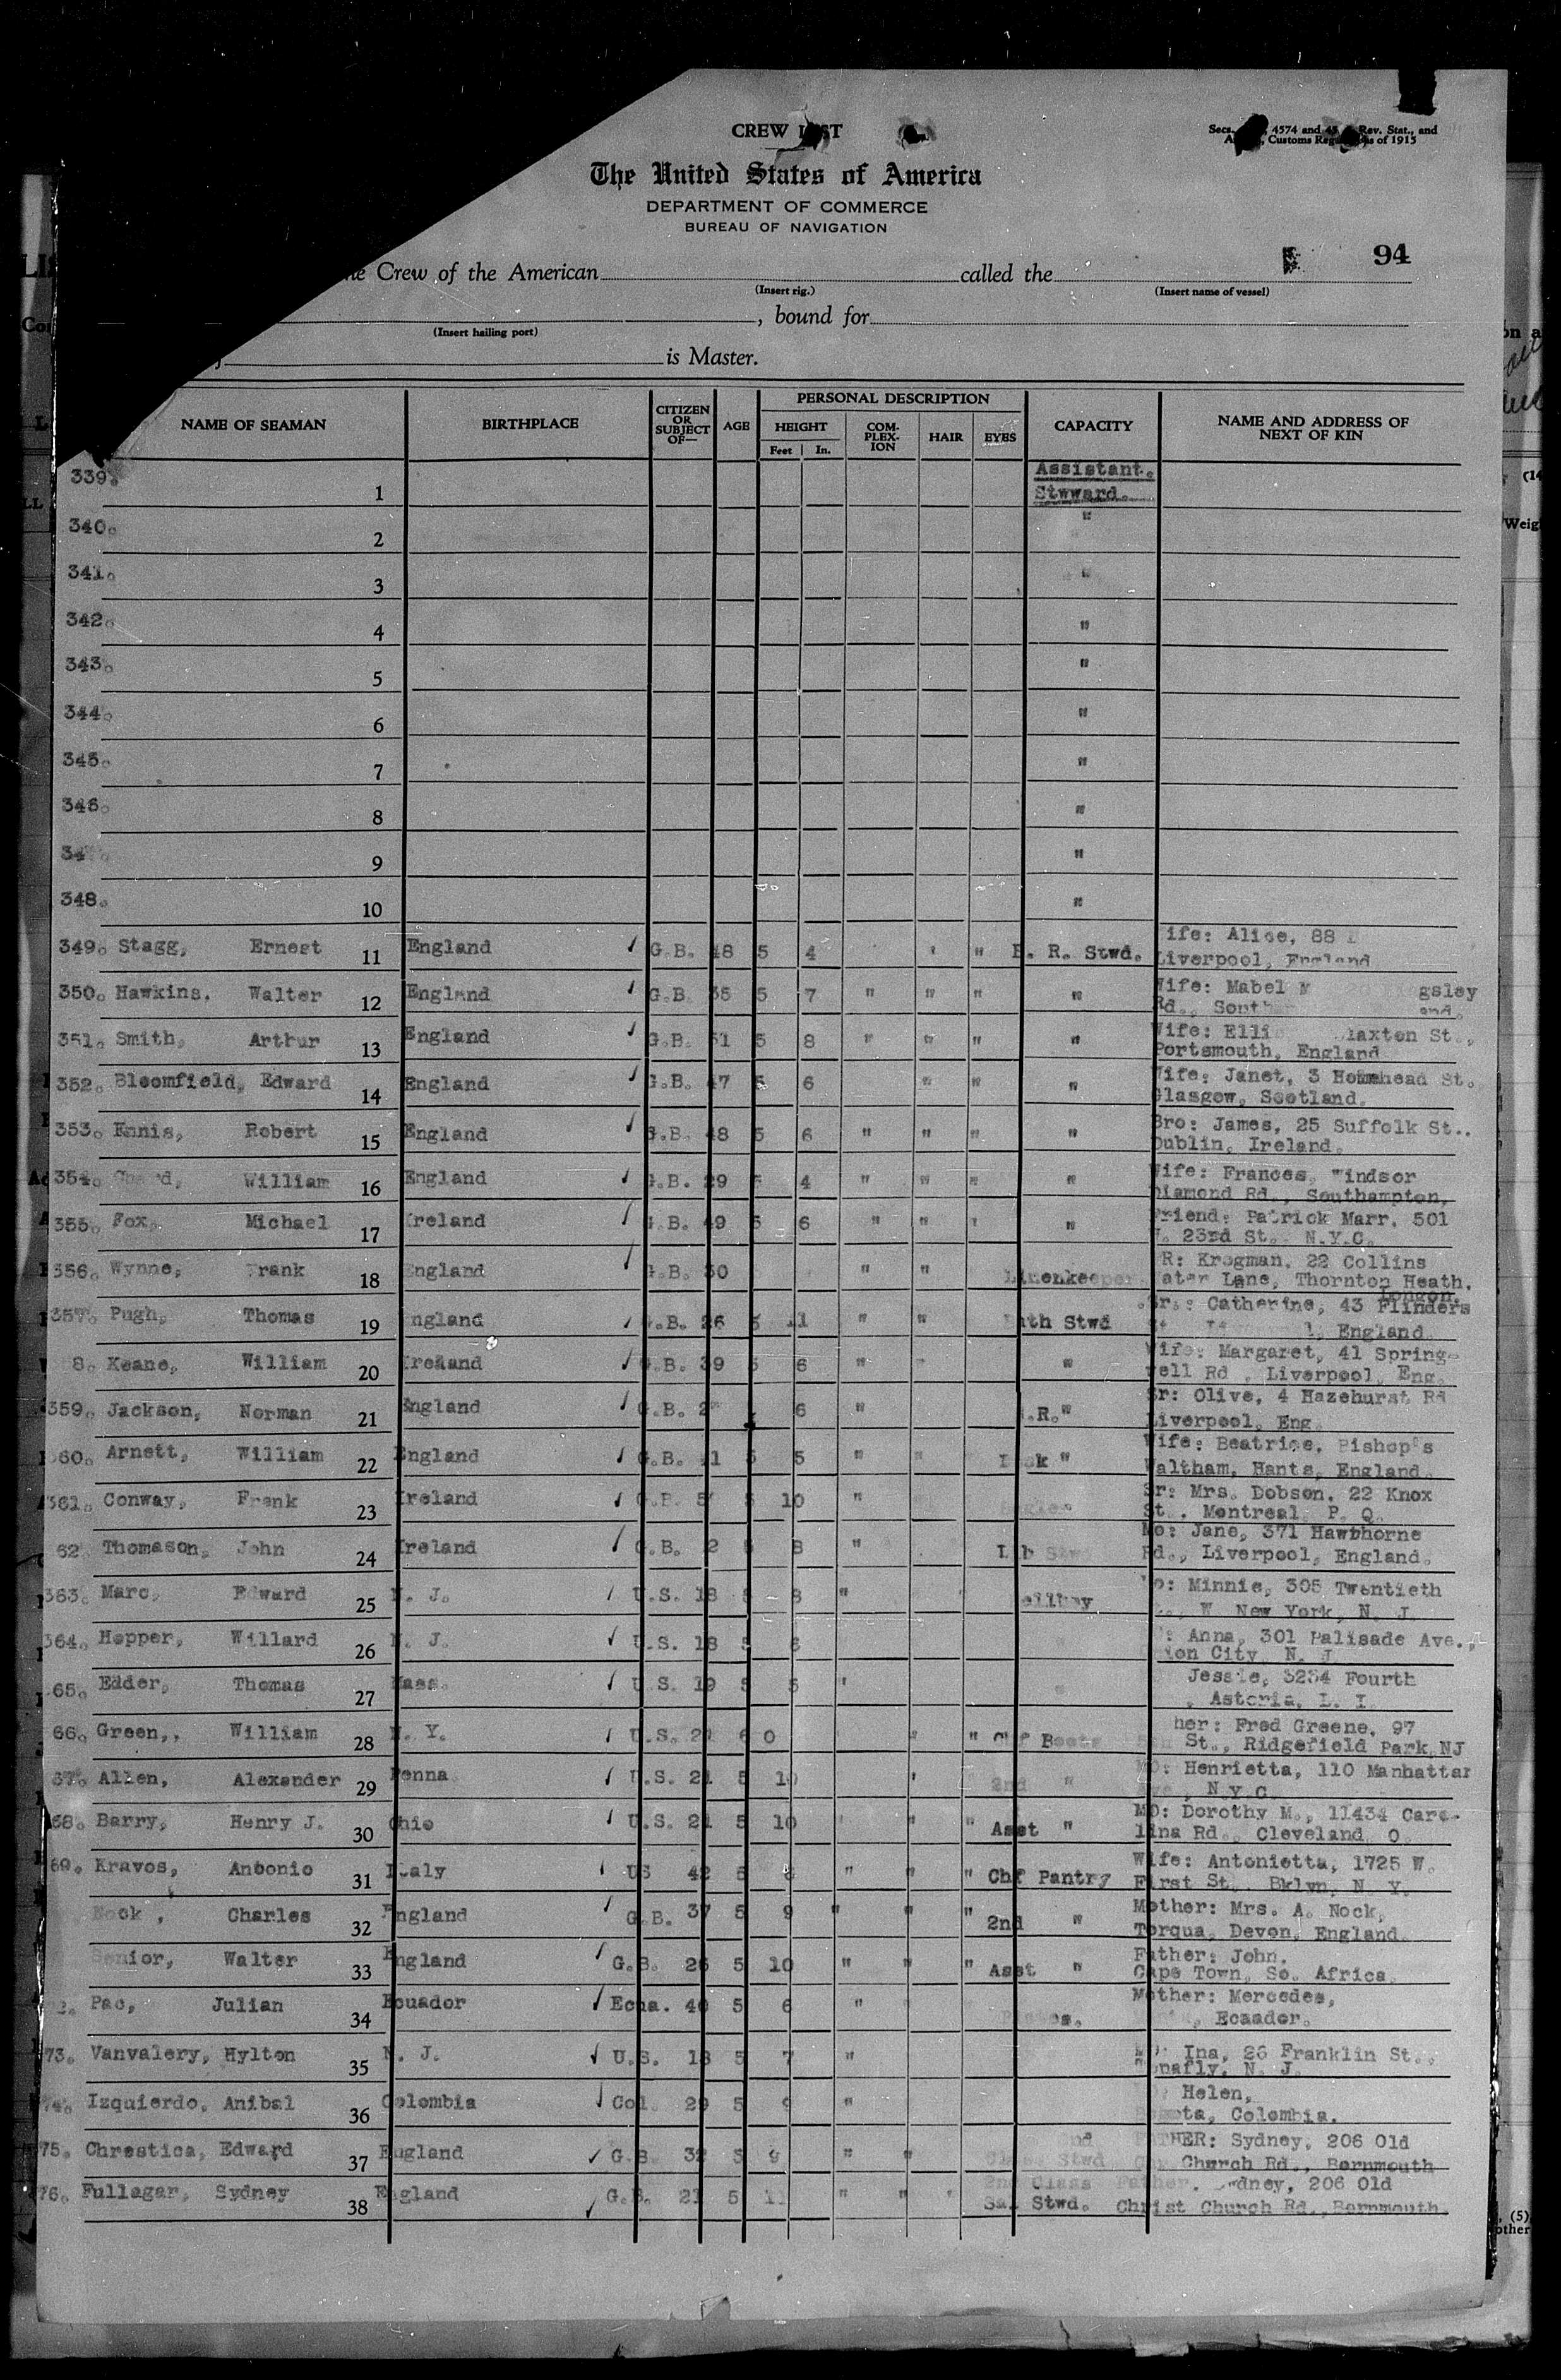 CREW
Secs. 4574 and Rev. Stat., and
Customs of 1915
The United States of America
DEPARTMENT OF COMMERCE
BUREAU OF NAVIGATION
94
Crew of the American called the
(Insert rig.) (Insert name of vessel)
, bound for
(Insert hailing port)
is Master.
NAME OF SEAMAN BIRTHPLACE CITIZEN OR SUBJECT OF— AGE PERSONAL DESCRIPTION CAPACITY NAME AND ADDRESS OF NEXT OF KIN
HEIGHT COM-PLEX-ION HAIR EYES
Feet In.
339. 1 Assistant.
Stwward.
340. 2 "
341. 3 "
342. 4 "
343. 5 "
344. 6 "
345. 7 "
346. 8 "
9 "
348. 10 "
349. Stagg, Ernest 11 England G.B. 48 5 4 " R. Stwd. Alice, 88
Liverpool, England
350. Hawkins, Walter 12 England G.B. 35 5 7 " " " " Wife: Mabel
Rd.,
351. Smith, Arthur 13 England G.B. 51 5 8 " " " " Wife: St.,
Portsmouth, England
352. Bloomfield, Edward 14 England G.B. 47 5 6 " " " Wife: Janet, 3 St.
Glasgow, Scotland.
353. Ennis, Robert 15 England G.B. 48 5 6 " " " " Bro: James, 25 Suffolk St..
Dublin, Ireland.
354. William 16 England G.B. 29 5 4 " " " " Wife: Frances, Windsor
Diamond Rd., Southampton,
355. Fox, Michael 17 Ireland G.B. 49 5 6 " " " Friend: Patrick Marr, 501
W. 23rd St. N.Y.C.
356. Wynne, Frank 18 England G.B. 30 " " Linenkeeper Krogman, 22 Collins
Water Lane, Thornton Heath.
London.
357. Pugh, Thomas 19 England G.B. 26 5 11 " " Bath Stwd Catherine, 43 Flinders
England
Keane, William 20 Ireland G.B. 39 5 6 " " Wife: Margaret, 41 Spring-
well Rd , Liverpool, Eng.
359. Jackson, Norman 21 England G.B. 6 " " Sr: Olive, 4 Hazehurst Rd
Liverpool, Eng.
360. Arnett, William 22 England G.B. 5 5 " " " Wife: Beatrice, Bishop's
Waltham, Hants, England.
361. Conway, Frank 23 Ireland G.B. 5 10 " Sr: Mrs. Dobson, 22 Knox
St., Montreal, P. Q.
Thomason, John 24 Ireland G.B. 8 " Mo: Jane, 371 Hawthorne
Rd., Liverpool, England.
363. Marc, Edward 25 N. J. U.S. 18 5 8 " Bellboy Mo: Minnie, 305 Twentieth
W New York, N. J.
364. Hopper, Willard 26 N. J. U.S. 18 5 Anna, 301 Palisade Ave.,
Union City, N. J
Edder, Thomas 27 Mass. U.S. 19 5 5 Jessie, 3234 Fourth
Astoria, L. I.
Green,, William 28 N. Y. U.S. 21 6 0 " " Chf Boots Fred Greene, 97
St., Ridgefield Park, NJ
Allen, Alexander 29 Penna. U.S. 21 5 10 2nd " MO: Henrietta, 110 Manhattan
Ave , N.Y.C.
Barry, Henry J. 30 Ohio U.S. 21 5 10 " " Asst " MO: Dorothy M., 11434 Caro-
lina Rd., Cleveland, O.
Kravos, Antonio 31 Italy US 42 5 " " " Chf Pantry Wife: Antonietta, 1725 W.
First St., Bklyn, N. Y.
Nock , Charles 32 England G.B. 37 5 9 " " " 2nd " Mother: Mrs. A. Nock,
Torqua, Devon, England.
Senior, Walter 33 England G.B. 26 5 10 " " " Asst " Father: John,
Cape Town, So. Africa.
Pac, Julian 34 Ecuador Ecua. 40 5 6 " Mother: Mercedes,
Ecaador.
Vanvalery, Hylton 35 N. J. U.S. 18 5 7 " Ina, 26 Franklin St.,
Tenafly, N. J.
Izquierdo, Anibal 36 Colombia Col. 29 5 9 " Helen,
Bogota, Colombia.
Chrestica, Edward 37 England G.B. 32 5 9 " " FATHER: Sydney, 206 Old
Stwd Church Rd., Bornmouth
Fullagar, Sydney 38 England G.B. 21 5 11 " " " 2nd Class Father. Sydney, 206 Old
Stwd. Christ Church Rd., Bornmouth.